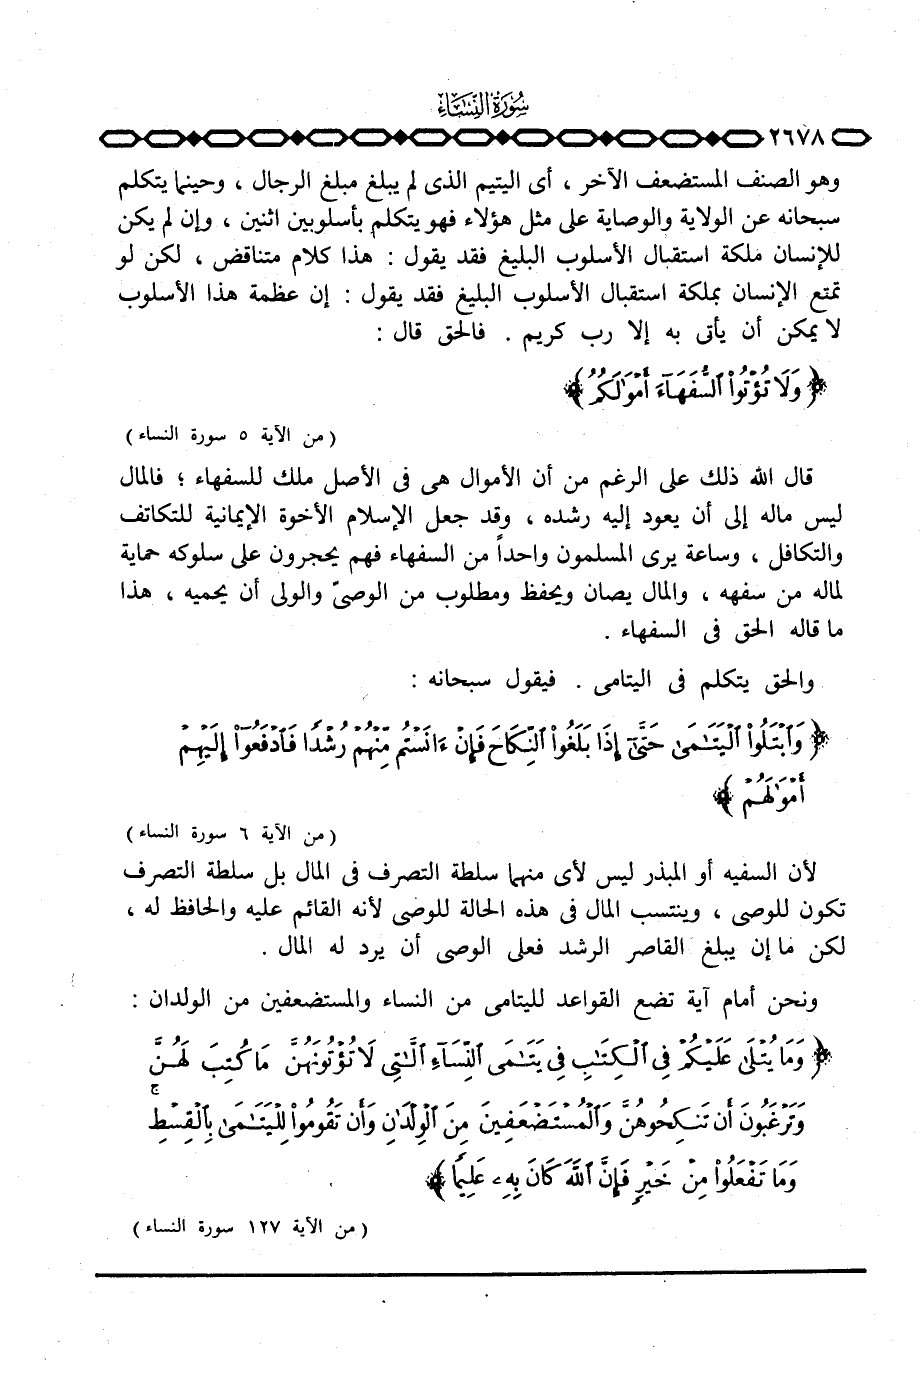 سُورَةُ النِّسَاءِ
٢٦٧٨
وهو الصنف المستضعف الآخر ، أى اليتيم الذى لم يبلغ مبلغ الرجال ، وحينما يتكلم
سبحانه عن الولاية والوصاية على مثل هؤلاء فهو يتكلم بأسلوبين اثنين ، وإن لم يكن
للإنسان ملكة استقبال الأسلوب البليغ فقد يقول : هذا كلام متناقض ، لكن لو
تمتع الإنسان بملكة استقبال الأسلوب البليغ فقد يقول : إن عظمة هذا الأسلوب
لا يمكن أن يأتى به إلا رب كريم . فالحق قال :
﴿ وَلَا تُؤْتُواْ ٱلسُّفَهَآءَ أَمْوَٰلَكُمُ ﴾
( من الآية ٥ سورة النساء )
قال الله ذلك على الرغم من أن الأموال هى فى الأصل ملك للسفهاء ؛ فالمال
ليس ماله إلى أن يعود إليه رشده ، وقد جعل الإسلام الأخوة الإيمانية للتكاتف
والتكافل ، وساعة يرى المسلمون واحداً من السفهاء فهم يحجرون على سلوكه حماية
لماله من سفهه ، والمال يصان ويحفظ ومطلوب من الوصىّ والولى أن يحميه ، هذا
ما قاله الحق فى السفهاء .
والحق يتكلم فى اليتامى . فيقول سبحانه :
﴿ وَٱبْتَلُواْ ٱلْيَتَٰمَىٰ حَتَّىٰٓ إِذَا بَلَغُواْ ٱلنِّكَاحَ فَإِنْ ءَانَسْتُم مِّنْهُمْ رُشْدًا فَٱدْفَعُوٓاْ إِلَيْهِمْ
أَمْوَٰلَهُمْ ﴾
( من الآية ٦ سورة النساء )
لأن السفيه أو المبذر ليس لأى منهما سلطة التصرف فى المال بل سلطة التصرف
تكون للوصى ، وينتسب المال فى هذه الحالة للوصى لأنه القائم عليه والحافظ له ،
لكن ما إن يبلغ القاصر الرشد فعلى الوصى أن يرد له المال .
ونحن أمام آية تضع القواعد لليتامى من النساء والمستضعفين من الولدان :
﴿ وَمَا يُتْلَىٰ عَلَيْكُمْ فِى ٱلْكِتَٰبِ فِى يَتَٰمَى ٱلنِّسَآءِ ٱلَّٰتِى لَا تُؤْتُونَهُنَّ مَا كُتِبَ لَهُنَّ
وَتَرْغَبُونَ أَن تَنكِحُوهُنَّ وَٱلْمُسْتَضْعَفِينَ مِنَ ٱلْوِلْدَٰنِ وَأَن تَقُومُواْ لِلْيَتَٰمَىٰ بِٱلْقِسْطِ ۚ
وَمَا تَفْعَلُواْ مِنْ خَيْرٍ فَإِنَّ ٱللَّهَ كَانَ بِهِۦ عَلِيمًا ﴾
( من الآية ١٢٧ سورة النساء )